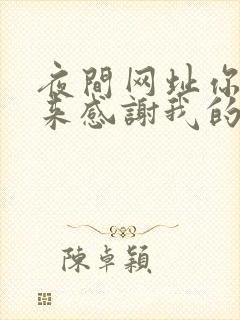 夜間网址你
来感謝我的
陳卓穎